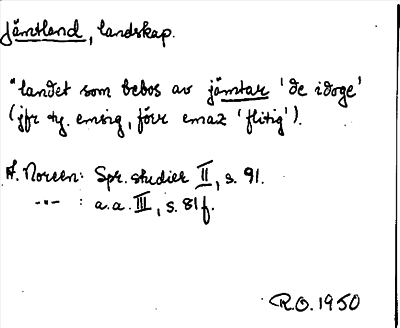 Jämtland, landskap.
"landet som bebos av jämtar 'de idoge'
(jfr ty. emsig, fövr emaz 'flitig').
A. Noreen: Spr. studier II, s. 91.
-"- : a.a. III, s. 81 f.
R.O. 1950